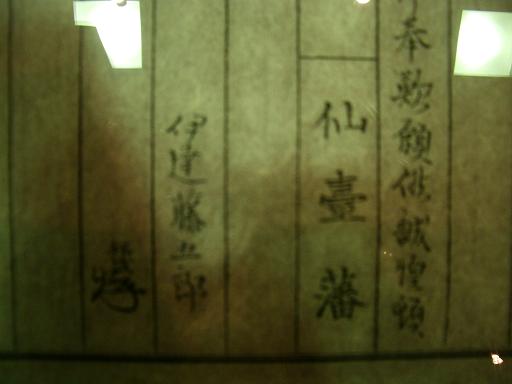 奉歎願候誠惶頓
仙臺藩
伊達藤五郎